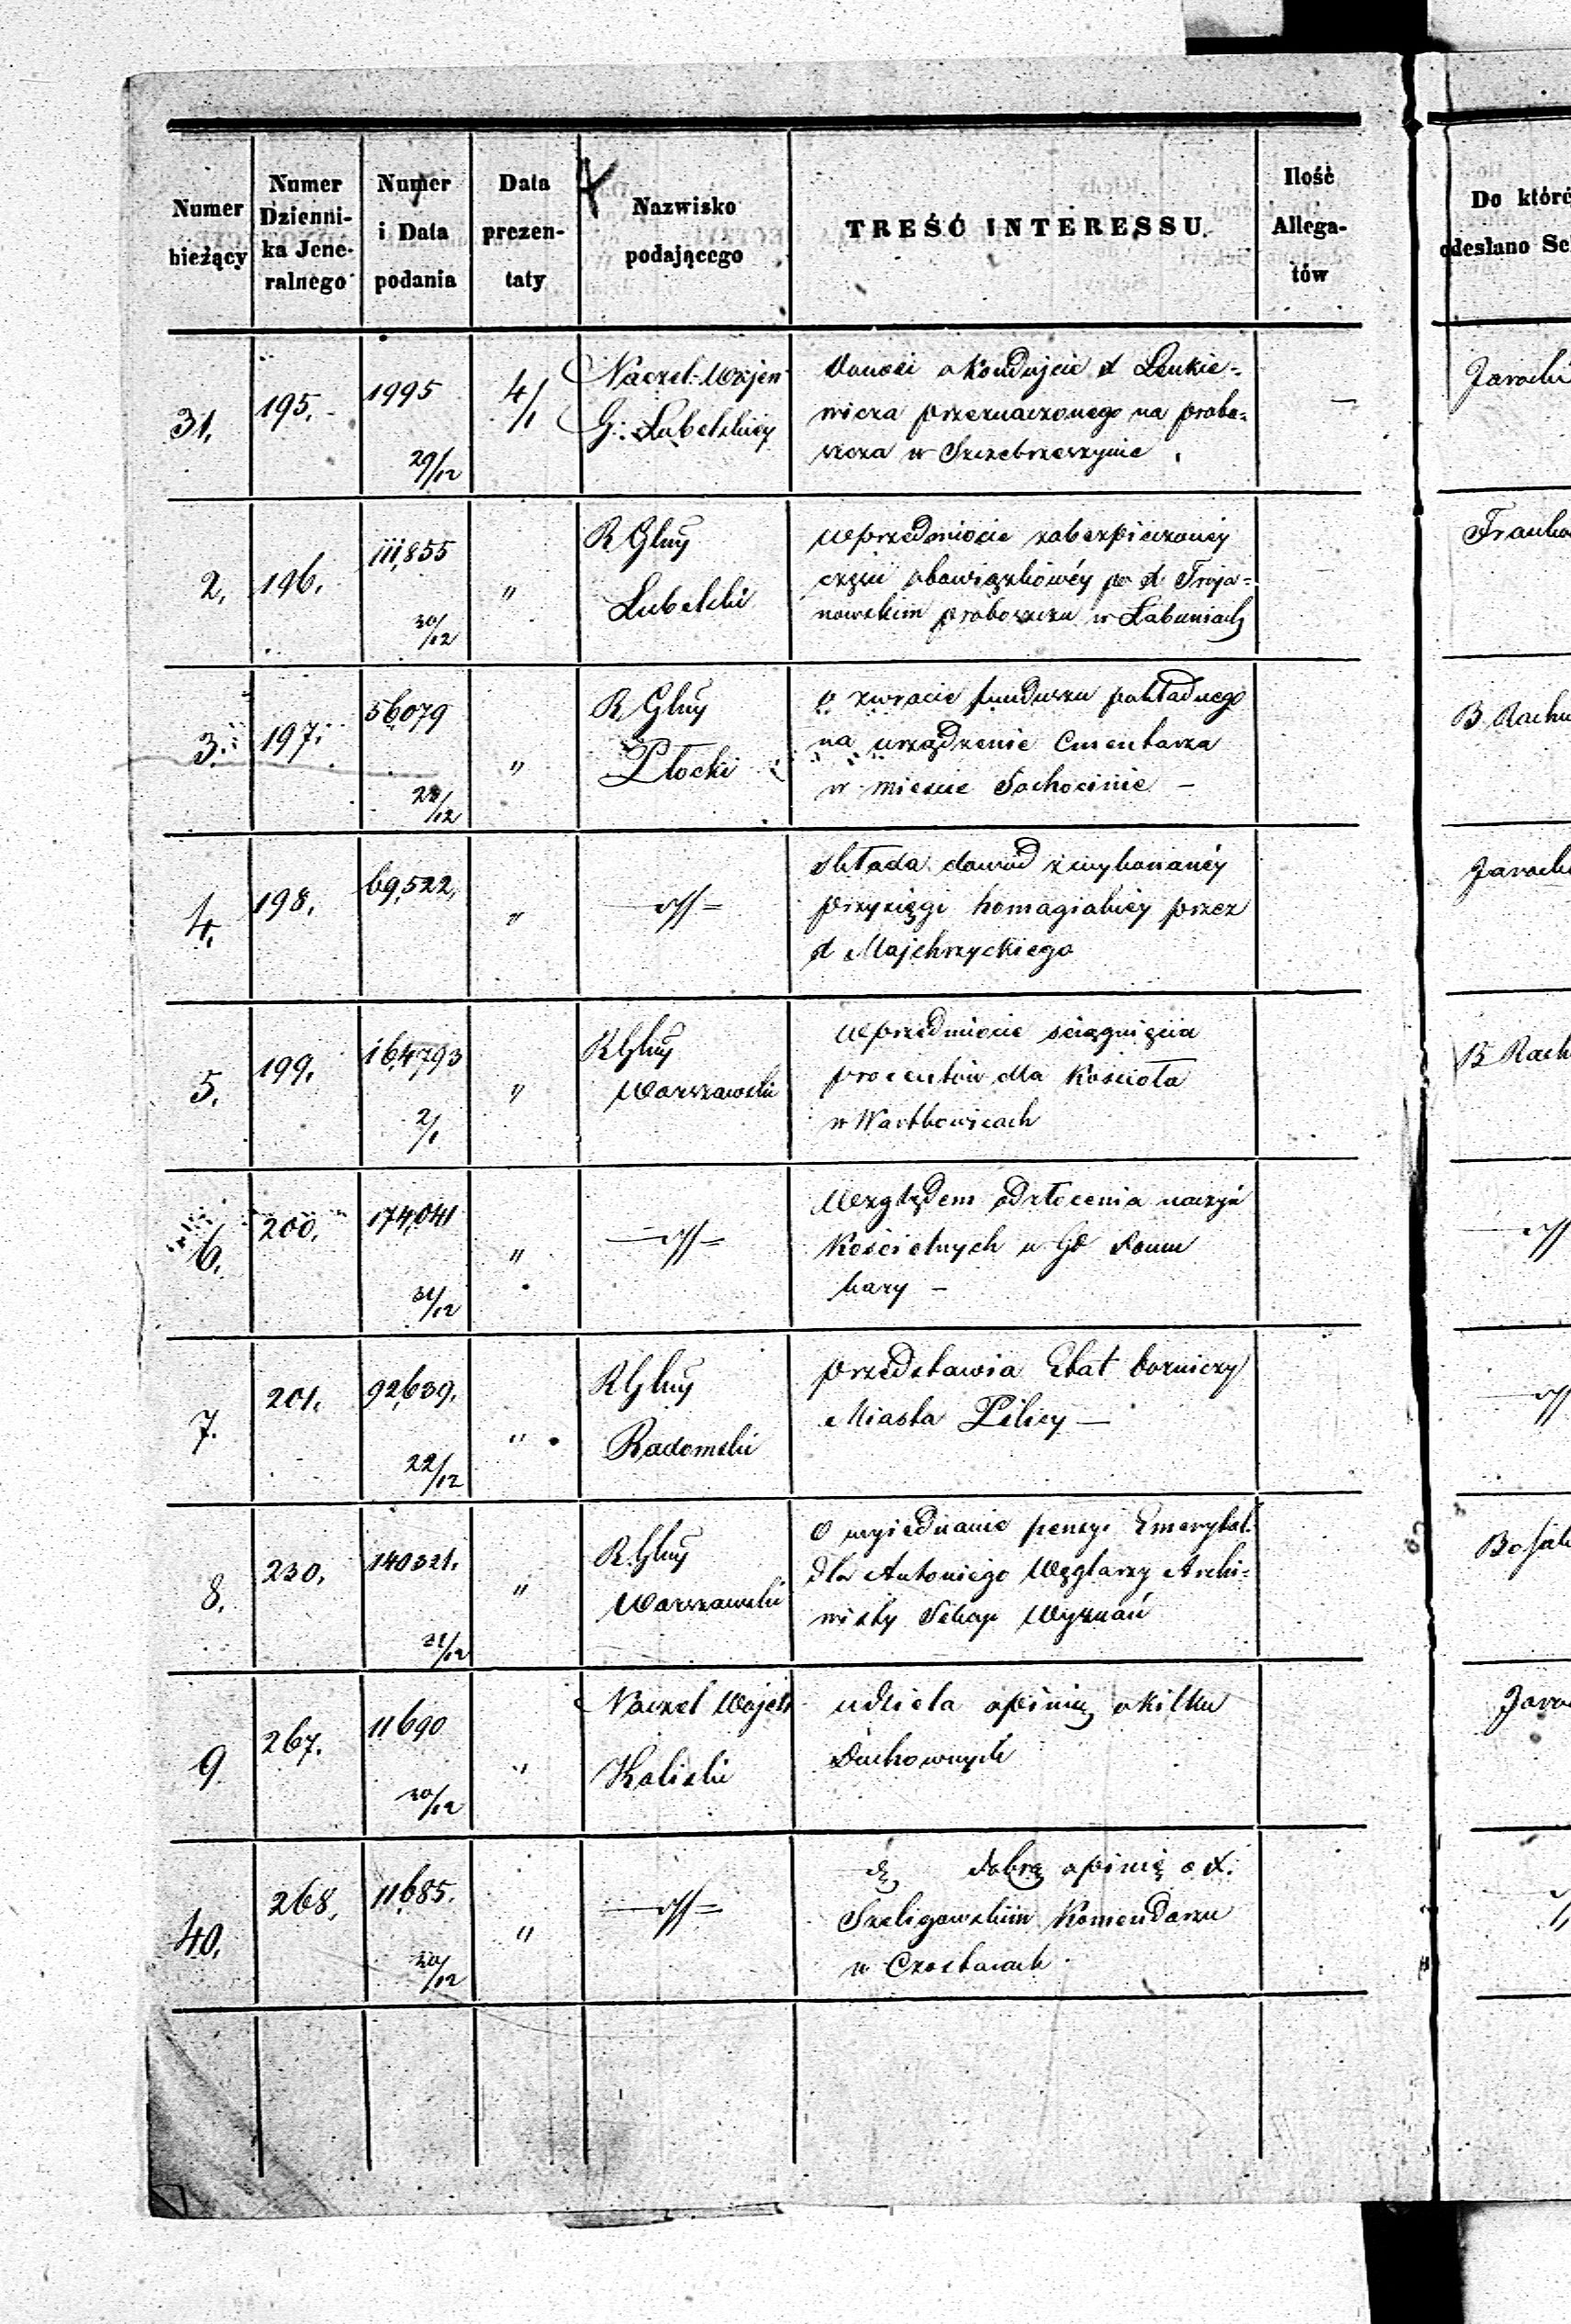 Numer bieżący | Numer Dziennika Jeneralnego | Numer i Data podania | Data prezentaty | Nazwisko podającego | TREŚĆ INTERESSU. | Ilość Allegatów | Do któré
odesłano Se
31. 195. 1995 29/12 4/1 Naczel. Wojen
G. Lubelskiey
Donosi o kondujcie X
wicza przeznaczonego na probo=
szcza w Szczebrzeszynie
2. 196. 111,855 30/12 " R Glny
Lubelski
w przedmiocie zabezpieczoney
części obowiązkowéy po X Troja=
nowskim proboszczu w Łabuniach
3. 197. 56079 28/12 " R Glny
Płocki
o zwrocie funduszu pokładnego
na urządzenie Cmentarza
w mieście Sochocinie –
Jarocki
B Rachu
4. 198. 69,522, "
składa dowód z wykonanéy
przysięgi homagialnéy przez
X Majchrzyckiego
5. 199. 164,793 2/1 " R Glny
Warszawski
w przedmiocie ściągnięcia
procentów dla Kościoła
w Wartkowicach
B Rach
6. 200. 174,041 31/12 "
Względem odzłocenia naczyń
Kościelnych w
7. 201. 92,639. 22/12 " R Glny
Radomski
przedstawia Etat bożniczy
Miasta Pilicy —
8. 230. 140321. 31/12 " R. Glny
Warszawski
O wyjednanie pensyi Emerytal.
dla Antoniego Węglarzy Archi=
wisty Sekcyi Wyznań
9 267. 11690 30/12 " Naczel Wojen
Kaliski
udziela opinię o kilku
Duchownych
40. 268. 11685. 30/12 "
dobrą opinię o X.
Szeligowskim Komendarzu
w